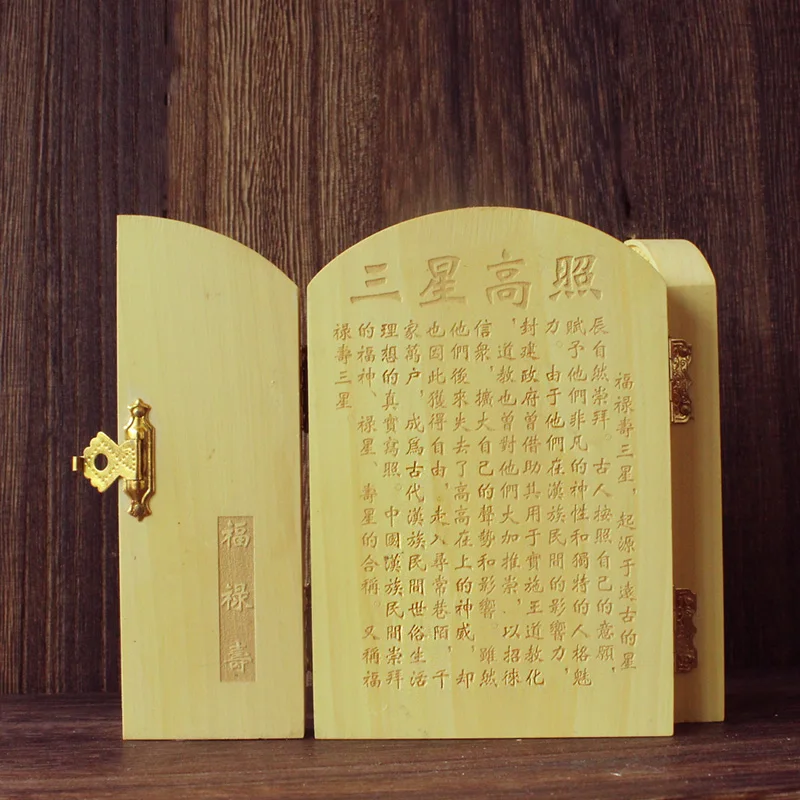 三星高照
福禄壽三星，起源于遠古的星
辰自然崇拜。古人按照自己的意願，
賦予他們非凡的神性和獨特的人格魅
力。由于他們在漢族民間的影響力，
封建政府曾借助其用于實施王道教化
，道教也曾對他們大加推崇、以招徠
信衆，擴大自己的聲勢和影響。雖然
他們後來失去了高高在上的神威，却
也因此獲得自由，走入尋常巷陌，千
家萬户，成爲古代漢族民間世俗生活
理想的真實寫照。中國漢族民間崇拜
的福神、禄星、壽星的合稱。又稱福
禄壽三星
福禄壽